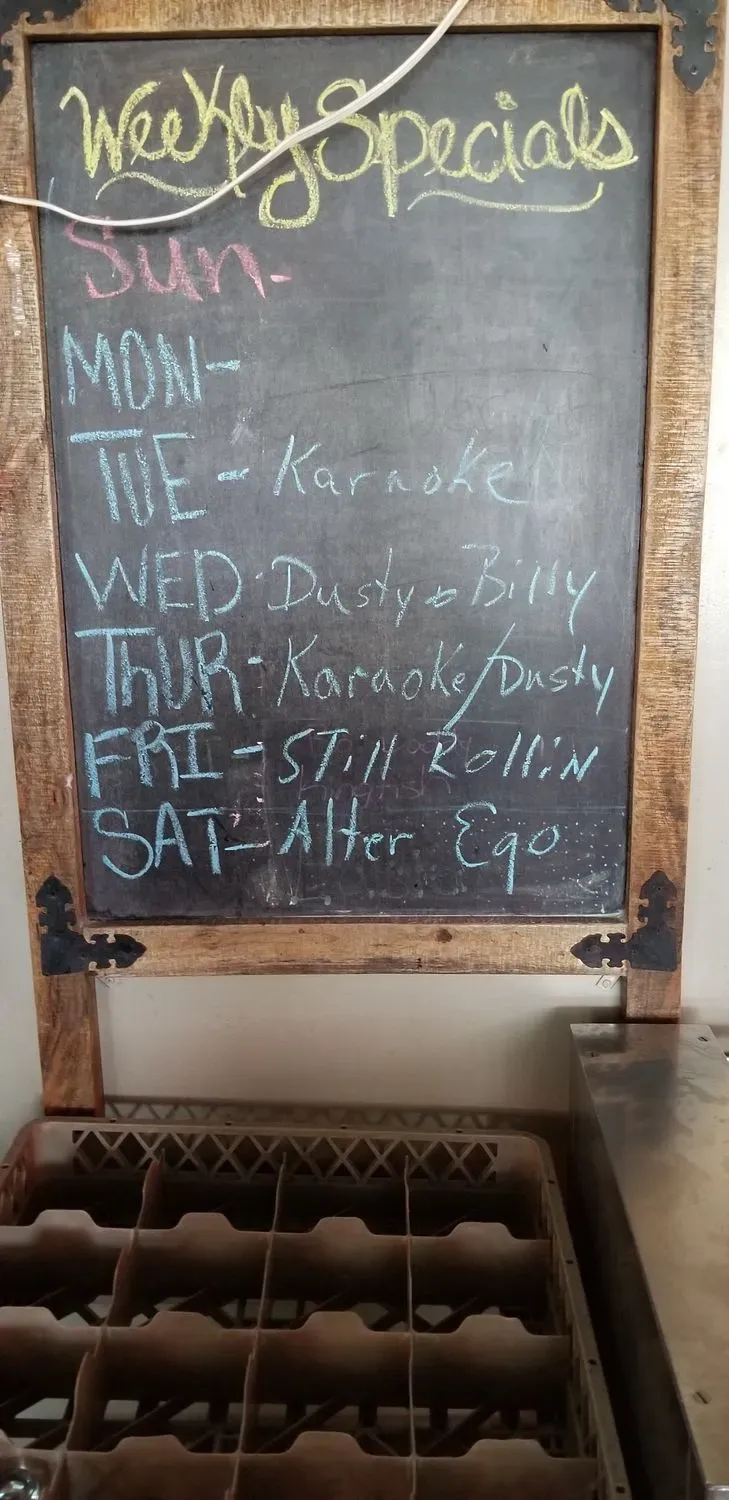 Weekly Specials
Sun-
MON-
TUE - Karaoke
WED - Dusty & Billy
ThUR - Karaoke/Dusty
FRI - STill Rollin
SAT - Alter Ego